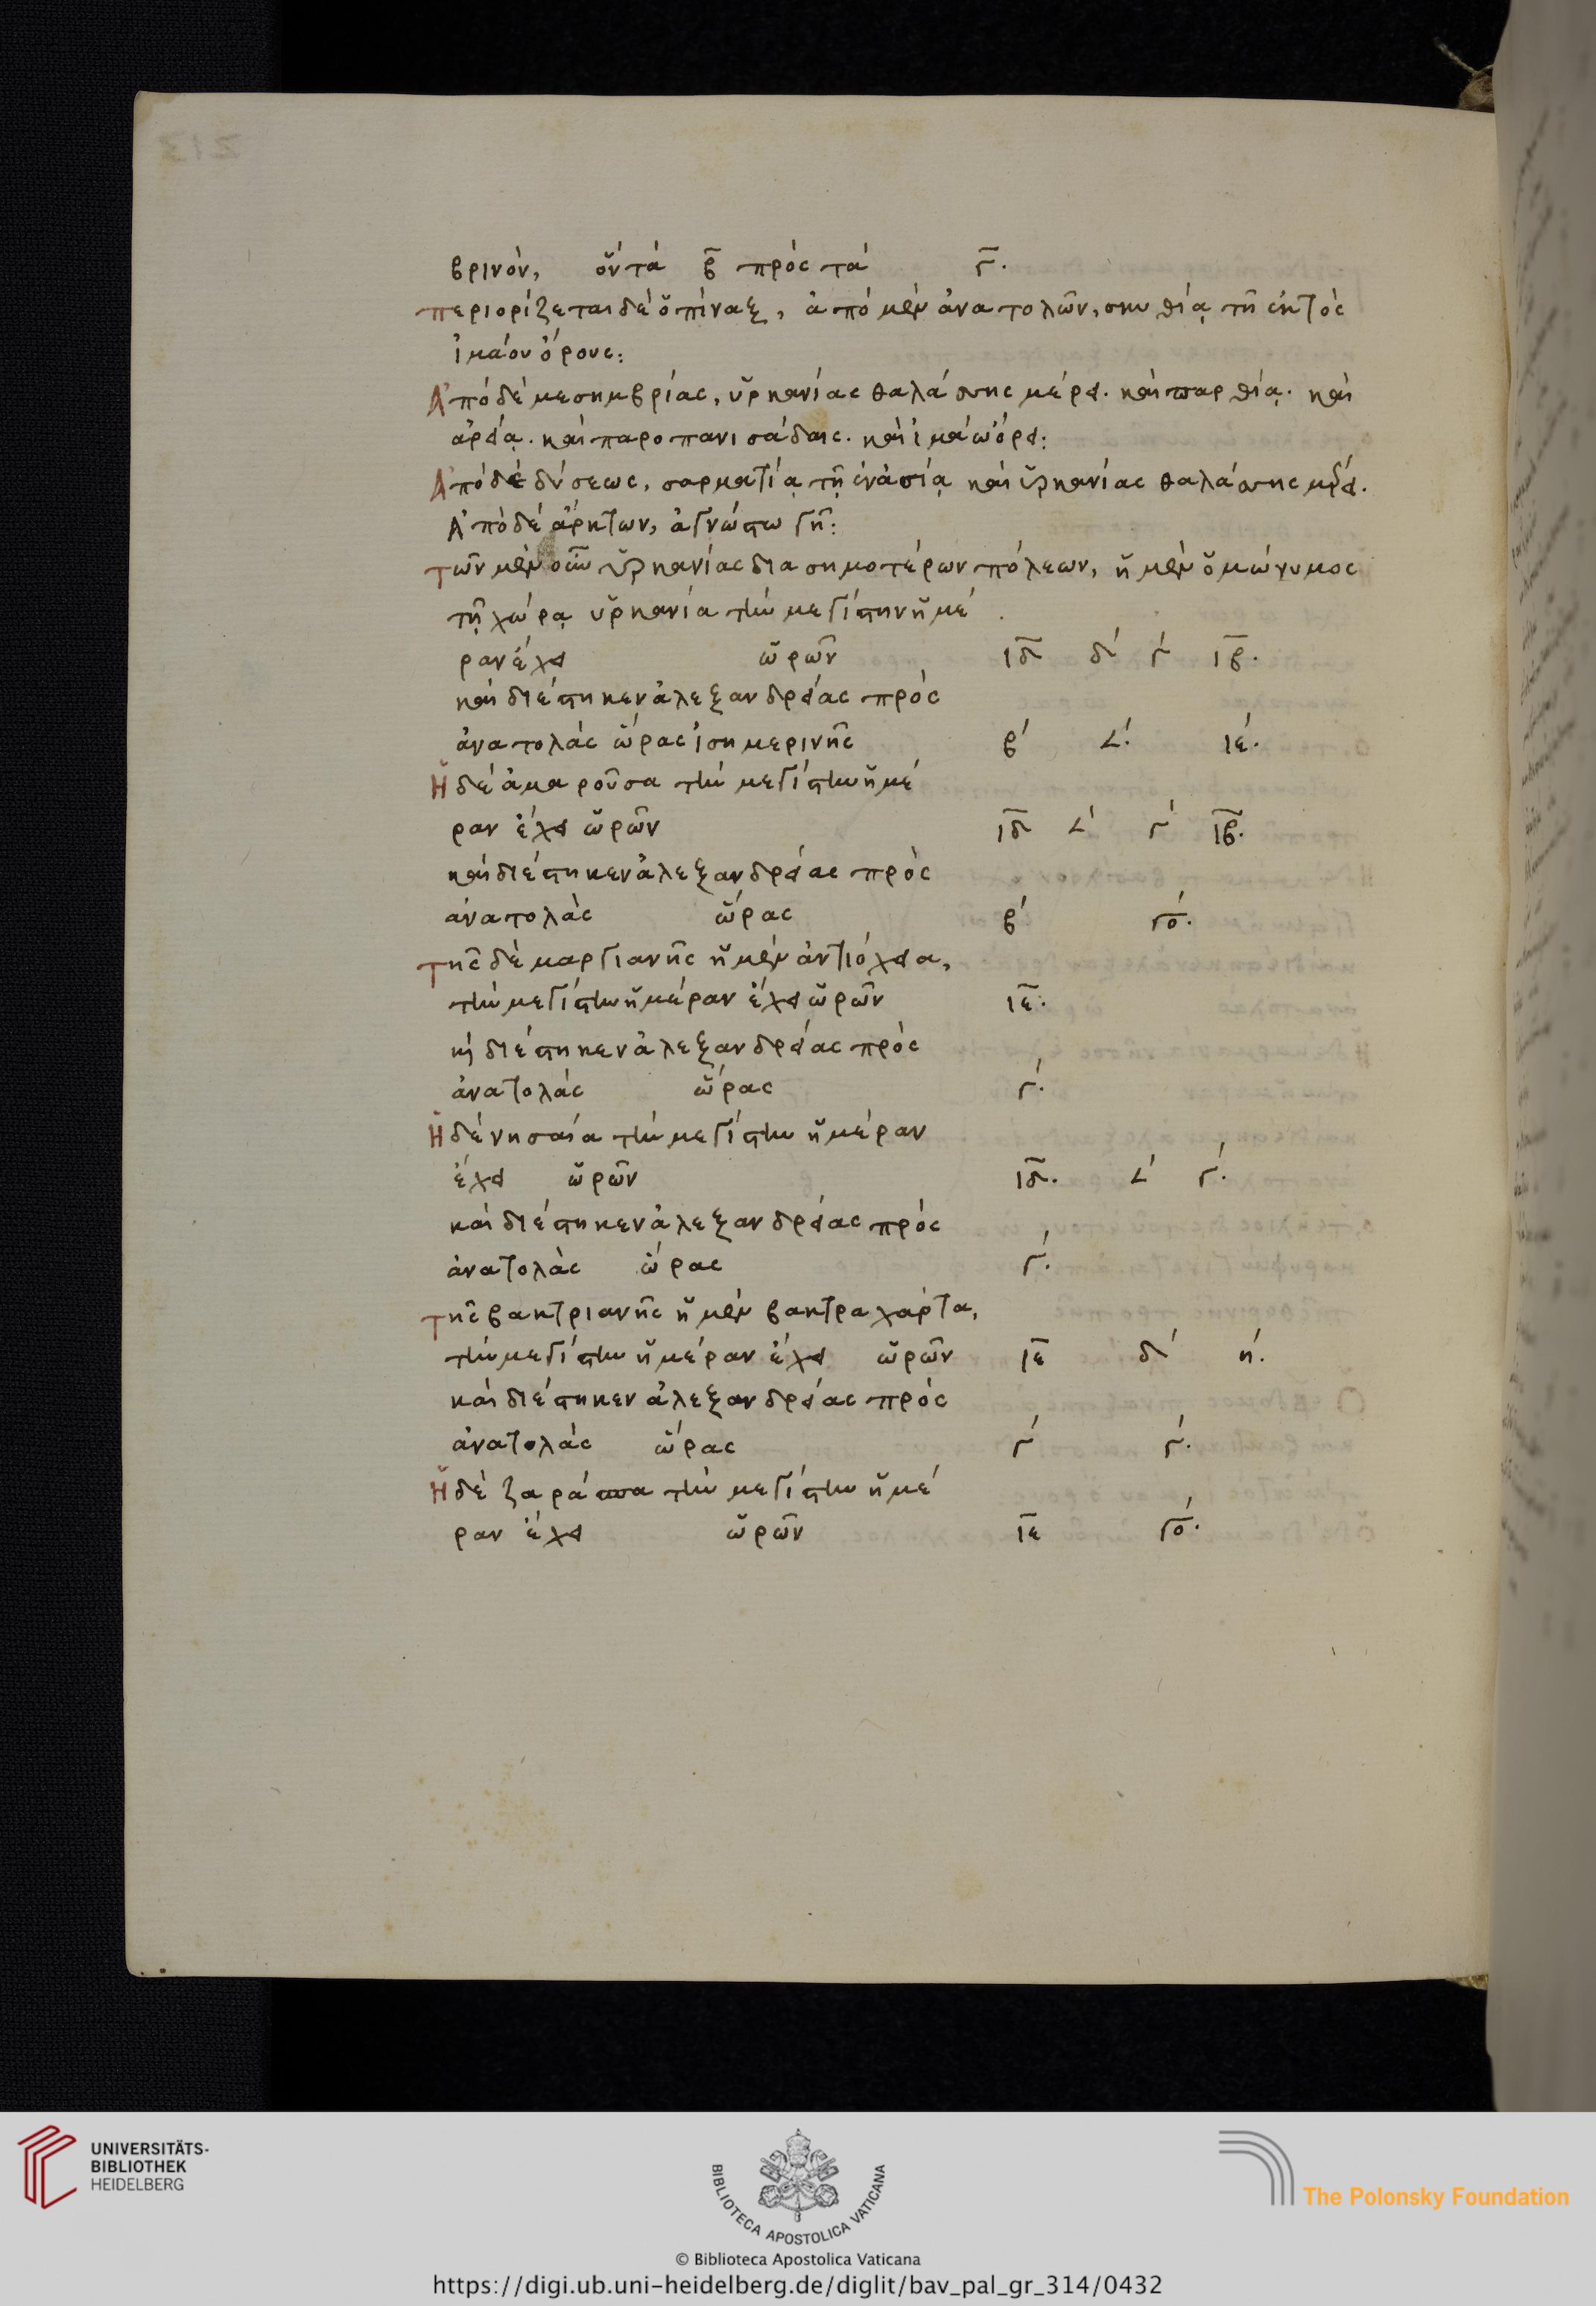 βρινὸν, ὃν τὰ β̅ πρὸς τὰ γ̅.
περιορίζεται δὲ ὁ πίναξ, ἀπὸ μὲν ἀνατολῶν, σκυθίᾳ τῇ ἐντὸς
ἰμάου ὄρους:
Ἀπὸ δὲ μεσημβρίας, ὑρκανίας θαλάσσης μέρει. καὶ παρθίᾳ. καὶ
ἀρείᾳ. καὶ παροπανισάδαις. καὶ ἰμάω ὄρει:
Ἀπὸ δὲ δύσεως, σαρματίᾳ τῇ ἐν ἀσίᾳ καὶ ὑρκανίας θαλάσσης μέρει.
Ἀπὸ δὲ ἄρκτων, ἀγνώστω γῇ:
τῶν μὲν οὖν ὑρκανίας διασημοτέρων πόλεων, ἡ μὲν ὁμώνυμος
τῇ χώρᾳ ὑρκανία τὴν μεγίστην ἡμέ
ραν ἔχει ὡρῶν ιδ̅ δ´ γ´ ιβ̅.
καὶ διέστηκεν ἀλεξανδρείας πρὸς
ἀνατολὰς ὥρας ἰσημερινῆς β´ ∠´. ιέ.
Ἡ δὲ ἀμαροῦσα τὴν μεγίστην ἡμέ
ραν ἔχει ὡρῶν ιδ̅ ∠´ γ´ ιβ̅.
καὶ διέστηκεν ἀλεξανδρείας πρὸς
ἀνατολὰς ὥρας β´ γό.
τῆς δὲ μαργιανῆς ἡ μὲν ἀντιόχεια,
τὴν μεγίστην ἡμέραν ἔχει ὡρῶν ιε̅.
κὶ διέστηκεν ἀλεξανδρείας πρὸς
ἀνατολὰς ὥρας γ´.
Ἡ δὲ νησαία τὴν μεγίστην ἡμέραν
ἔχει ὡρῶν ιδ̅. ∠´ γ´.
καὶ διέστηκεν ἀλεξανδρείας πρὸς
ἀνατολὰς ὥρας γ´.
τῆς βακτριανῆς ἡ μὲν βακτρα χάρτα,
τὴν μεγίστην ἡμέραν ἔχει ὡρῶν ιε̅ δ´ ή.
καὶ διέστηκεν ἀλεξανδρείας πρὸς
ἀνατολὰς ὥρας γ´ γ´.
Ἡ δὲ ζαράσπα τὴν μεγίστην ἡμέ
ραν ἔχει ὡρῶν ιε̅ γό.
UNIVERSITÄTS-
BIBLIOTHEK
HEIDELBERG
BIBLIOTECA APOSTOLICA VATICANA
The Polonsky Foundation
© Biblioteca Apostolica Vaticana
https://digi.ub.uni-heidelberg.de/diglit/bav_pal_gr_314/0432